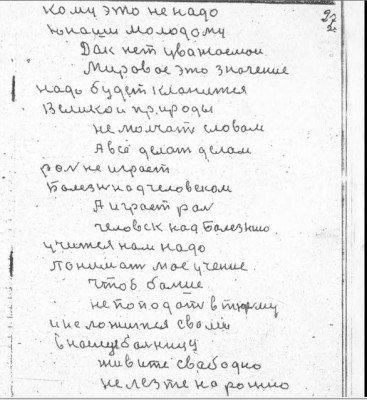 кому это не надо
юнаши молодому
Дак нет уважаемои
Мировое это значение
надо будет кланится
Великои природы
не молчат словам
А всё делат делам
рол не играет
Болезн над человеком
А играет рол
человек над Болезнию
учится нам надо
понимат мое учение
чтоб болше
не попадат в тюрму
и не ложится своми
в нашу болницу
живите свабодно
не лезте на рожно